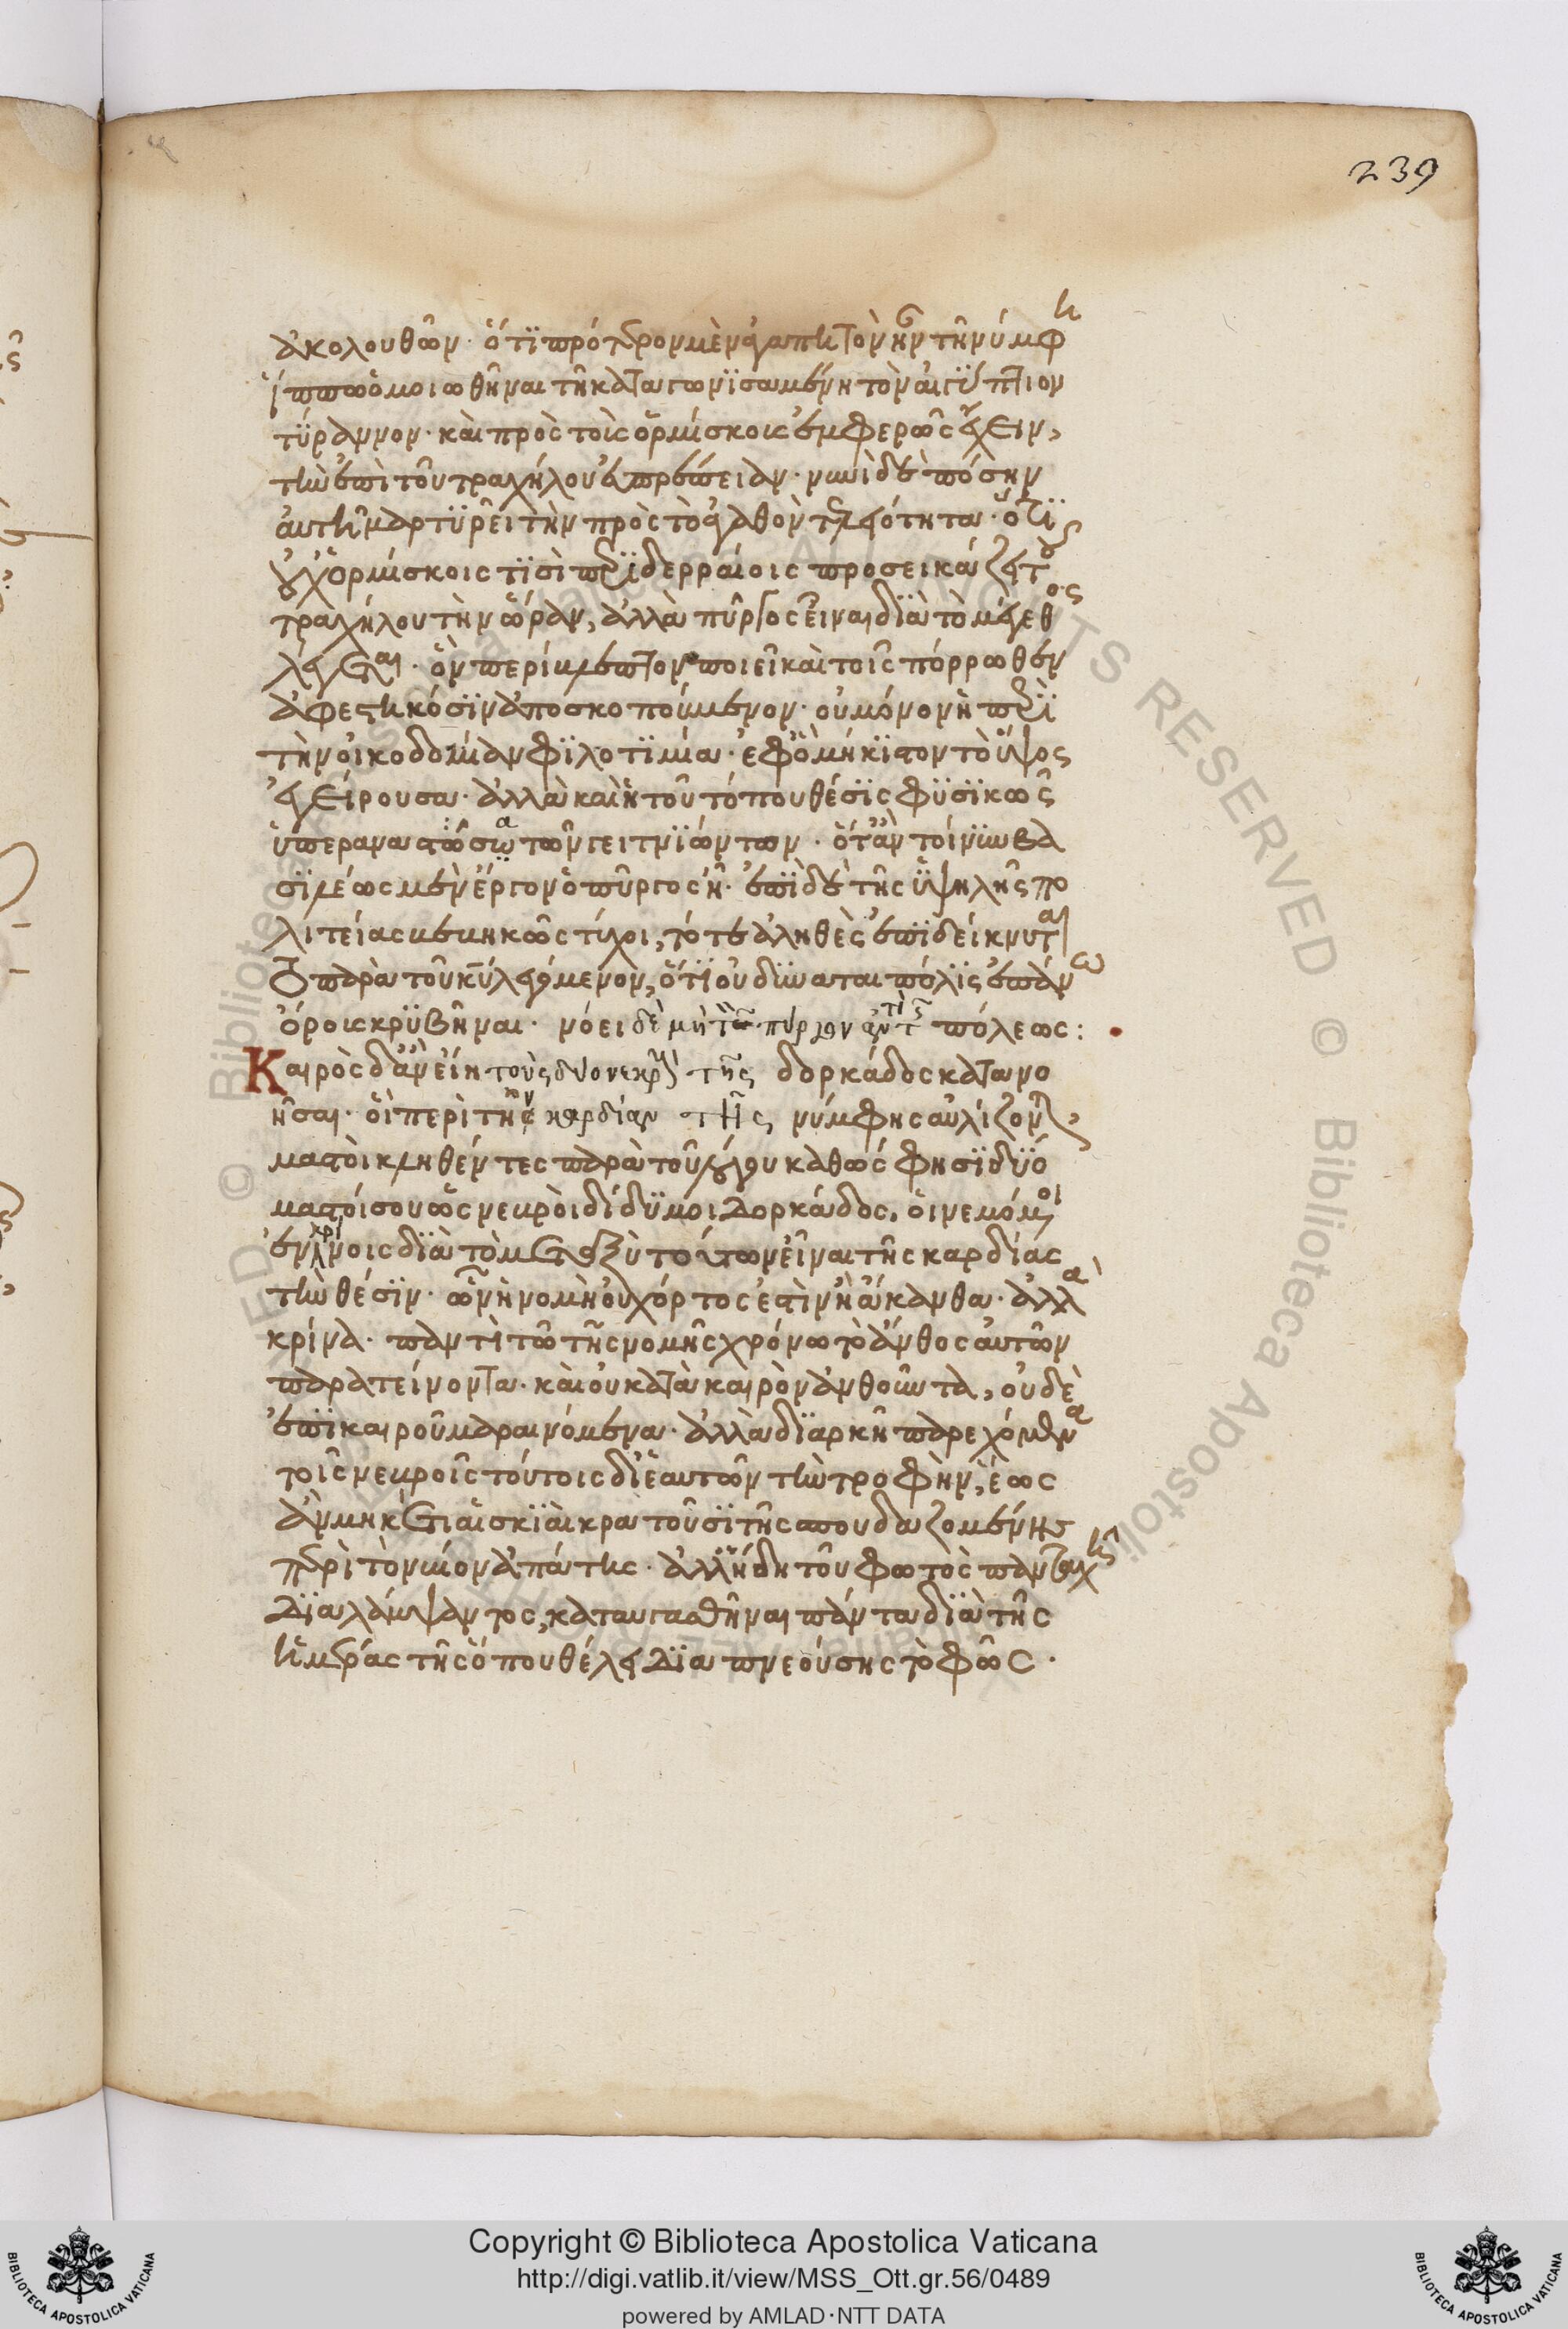 239
ἀκολουθῶν· ὅτι πρότερον μὲν ἀγαπητὸν ἦν τῇ νύμφη
ἵππω ὁμοιωθῆναι τῇ καταγωνισαμένη τὸν αἰγύπτιον
τύραννον· καὶ πρὸς τοῖς ὁρμίσκοις ἐμφερῶς ἔχειν,
τὴν ἐπὶ τοῦ τραχήλου εὐπρέπειαν· νυνὶ δὲ πόσην
αὐτῆ μαρτυρεῖ τὴν πρὸς τὸ ἀγαθὸν τελειότητα· ὅτι
οὐχ ὁρμίσκοις τισὶ περιδερραίοις προσεικάζει τοῦ
τραχήλου τὴν ὥραν, ἀλλὰ πύργος εἶναι διὰ τὸ μέγεθος
λέγεται· ὃν περίβλεπτον ποιεῖ καὶ τοῖς πόρρωθεν
ἀφεστηκόσιν ἀποσκοπούμενον· οὐ μόνον ἡ περὶ
τὴν οἰκοδομίαν φιλοτιμία· ἐφ ὃ μήκιστον τὸ ὕψος
ἐγείρουσα· ἀλλὰ καὶ ἡ τοῦ τόπου θέσις φυσικῶς
ὑπερανα τῶν γειτνιώντων· ὅτ ἂν τοίνυν βα
σιλέως μὲν ἔργον ὁ πύργος ἦ· ἐπὶ δὲ τῆς ὑψηλῆς πο
λιτείας κεκηκὼς τύχοι, τότε ἀληθὲς ἐπιδείκνυται
τὸ παρὰ τοῦ κυ λεγόμενον, ὅτι οὐ δύναται πόλις ἐπάνω
ὄροις κρυβῆναι· νόει δὲ μὴ πύργον ἀντὶ τῆς πόλεως:
Καιρὸς δ ἂν εἴη τοὺς δύο νεκροὺς τῆς δορκάδος κατανο
ῆσαι· οἳ περὶ τὴν καρδίαν τῆς νύμφης αὐλίζονται,
μαστοὶ κληθέντες παρὰ τοῦ λόγου καθὼς φησι δύο
μαστοί σου ὡς νεκροὶ δίδυμοι δορκάδος, οἱ νεμόμενοι
ἐν κρίνοις διὰ τὸ μεταξὺ τούτων εἶναι τῆς καρδίας
τὴν θέσιν· ὧν ἡ νομὴ οὐ χόρτος ἐστὶν ἢ ἄκανθα· ἀλλὰ
κρίνα· παντὶ τῶ τῆς νομῆς χρόνω τὸ ἄνθος αὐτῶν
παρατείνοντα· καὶ οὐ κατὰ καιρὸν ἀνθοῦντα, οὐδὲ
ἐπὶ καιροῦ μαραινόμενα· ἀλλὰ διαρκῆ παρεχόμενα
τοῖς νεκροῖς τούτοις δι ἑαυτῶν τὴν τροφὴν, ἕως
ἂν μηκέτι αἱ σκιαὶ κρατοῦσι τῆς σπουδαζομένης
περὶ τὸν βίον ἀπάτης· ἀλλ ἤδη τοῦ φωτὸς πανταχῆ
διαλάμψαντος, καταυγασθῆναι πάντα διὰ τῆς
ἡμέρας τῆς ὅπου θέλει διαπνεούσης τὸ φῶς.
Copyright © Biblioteca Apostolica Vaticana
http://digi.vatlib.it/view/MSS_Ott.gr.56/0489
powered by AMLAD·NTT DATA